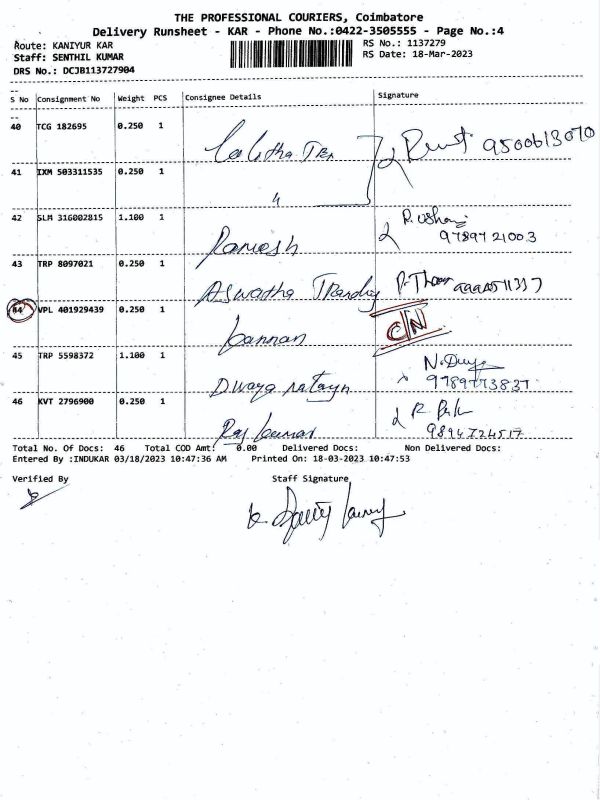 THE PROFESSIONAL COURIERS, Coimbatore
Delivery Runsheet - KAR - Phone No.:0422-3505555 - Page No.:4
Route: KANIYUR KAR RS No.: 1137279
Staff: SENTHIL KUMAR RS Date: 18-Mar-2023
DRS No.: DCJB113727904
S No Consignment No Weight PCS Consignee Details Signature
40 TCG 182695 0.250 1 Lalitha 9500613070
41 IXM 503311535 0.250 1 "
42 SLM 316002815 1.100 1 Ramesh 9789721003
43 TRP 8097021 0.250 1 Aswatha
44 VPL 401929439 0.250 1 kannan C/N
45 TRP 5598372 1.100 1
46 KVT 2796900 0.250 1 Raj kumar 9894724517
Total No. Of Docs: 46 Total COD Amt: 0.00 Delivered Docs: Non Delivered Docs:
Entered By :INDUKAR 03/18/2023 10:47:36 AM Printed On: 18-03-2023 10:47:53
Verified By Staff Signature